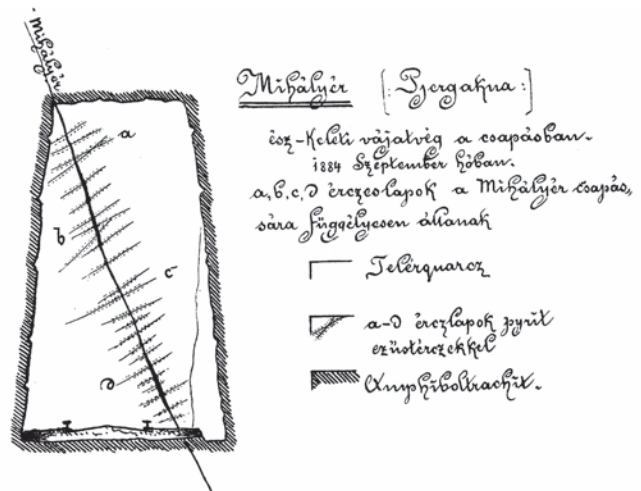 Mihályér
a
b
c
d
Mihályér [: Pjergakna :]
ész-Keleti vájatvég a csapásban.
1884 Szeptember hóban.
a, b, c, d érczeslapok a Mihályér csapás,,
sára függélyesen állanak
Telérquarcz
a-d érczlapok pyrit
ezüstérczekkel
Amphiboltrachit.